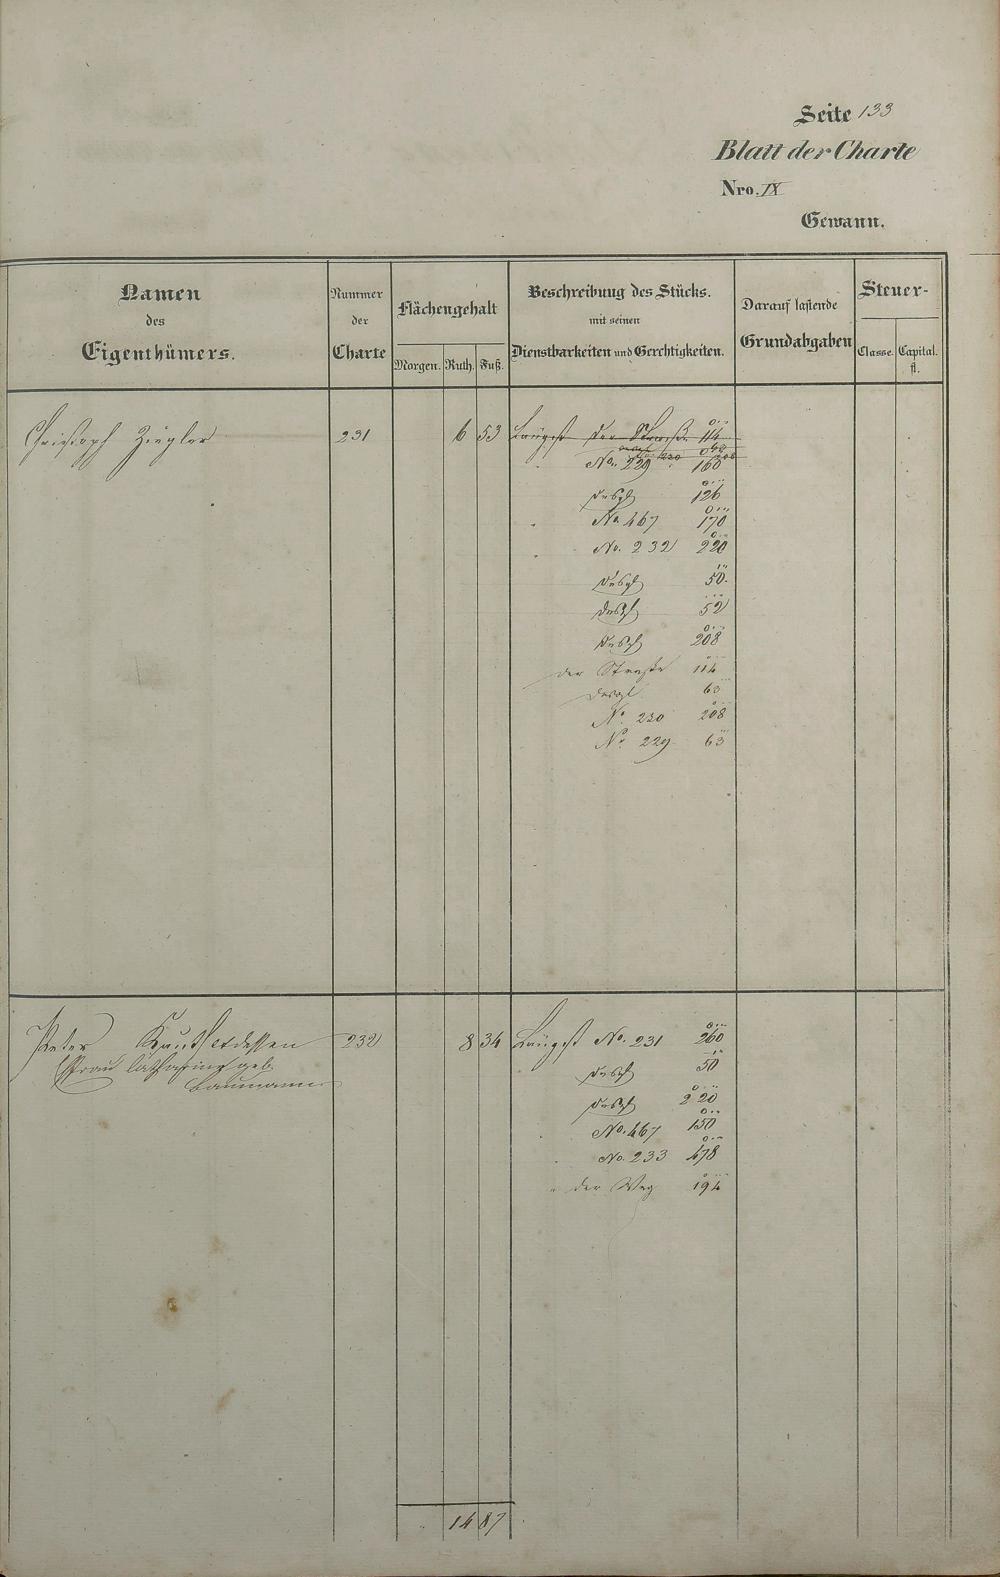 Seite 133
Blatt der Charte
Nro. IX
Gewann.
Namen des Eigenthümers.
Nummer der Charte
Flächengehalt
Morgen. Ruth. Fuß.
Beschreibung des Stücks.
mit seinen
Dienstbarkeiten und Gerechtigkeiten.
Darauf lastende
Grundabgaben
Steuer-
Classe. Capital. fl.
Christoph Ziegler 231 6 53 Längst der Straße 114
No. 229 160
desgl 126
No. 467 170
No. 232 220
desgl 50
desgl 52
desgl 208
der Straße 114
desgl. 63
No. 230 208
No. 229 63
Peter Kauth et dessen 232 8 34 Längst No. 231 260
Frau Catharina geb. desgl 50
Baumann
desgl 220
No. 467 150
No. 233 478
" der Weg 194
14 87